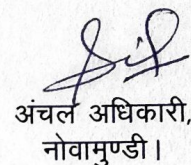 अंचल अधिकारी,
नोवामुण्डी।